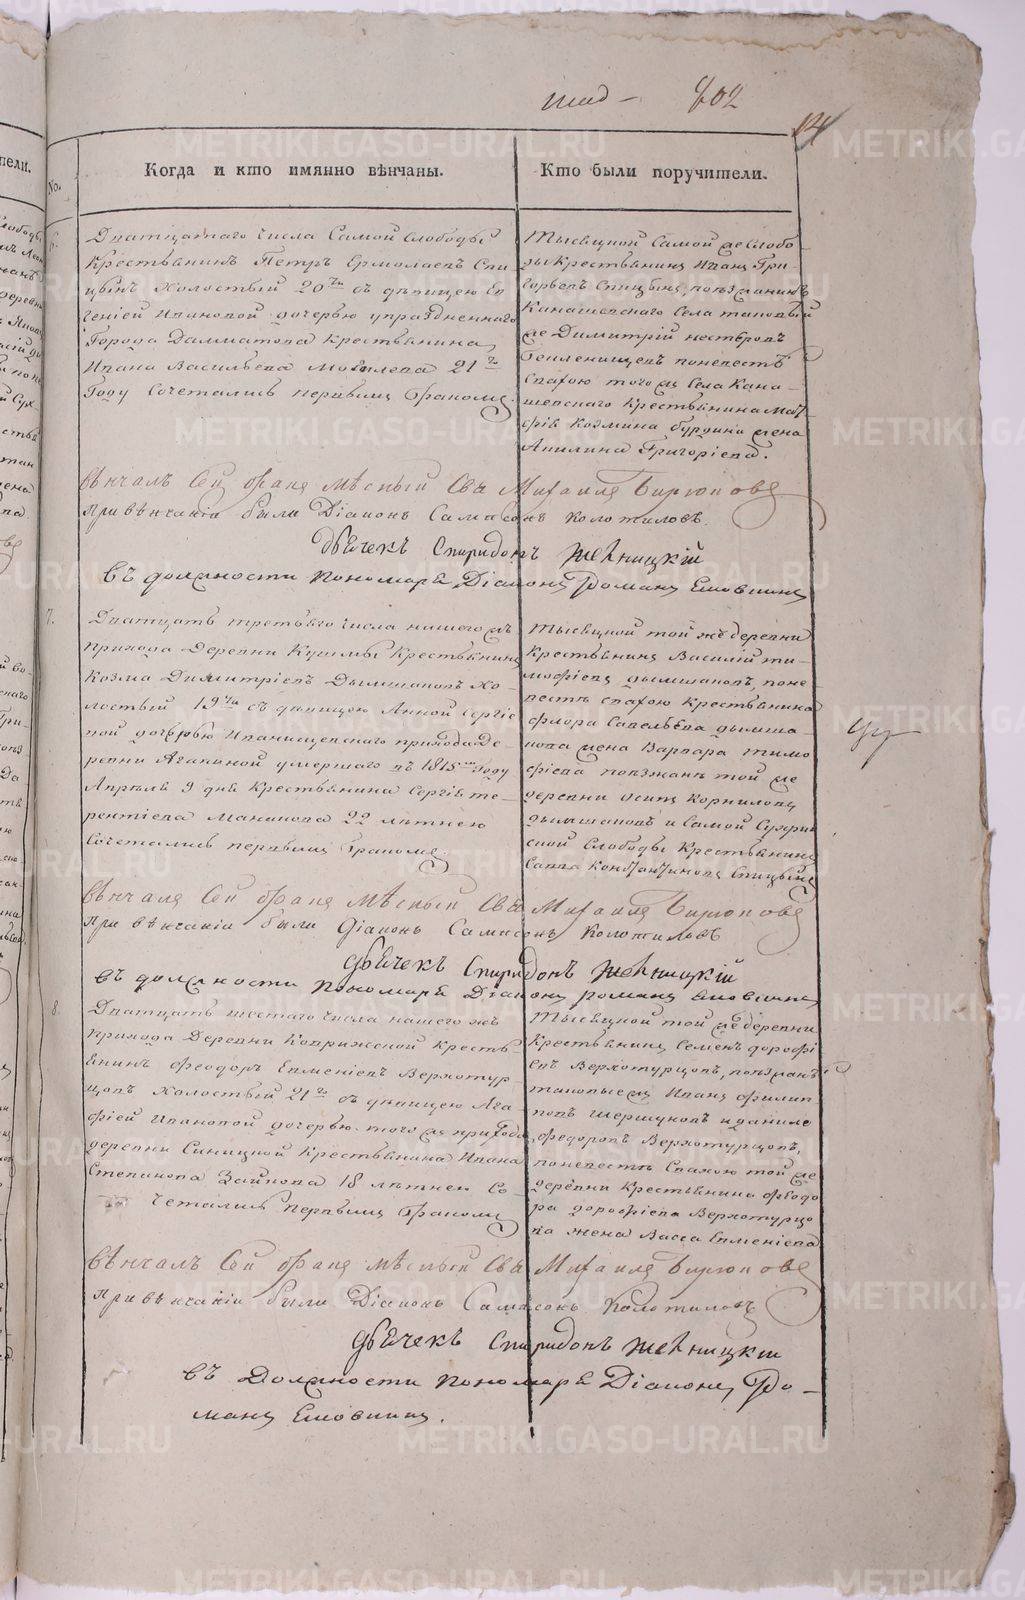 802
14
Когда и кто имянно вѣнчаны.
Кто были поручители.
No.
6.
Дватцатаго числа Самой слободы
крестьянинъ Петръ Ермолаевъ Спи-
цынъ холостый 20ти съ дѣвицею Ев
геніей Ивановой дочерью упраздненнаго
Города Далматова крестьянина
Ивана Васильева Могилева 21го
Году сочетались первымъ бракомъ.
Тысяцкой Самой же слобо
ды крестьянинъ Иванъ Гри-
горьевъ Спицынъ, поѣзжанинъ
Канашевскаго села таковый
же Димитрій Нестеровъ
поневестѣ
Свахою того жъ села Кана-
шевскаго крестьянина Мат
фія Козмина Бурдина жена
Акилина Григоріева.
Вѣнчалъ Сей бракъ мѣсный Свя Михаилъ Бирюковъ
При вѣнчаніи были Діаконъ Самсонъ Колотиловъ.
Дьячекъ Спиридонъ
въ должности пономаря Діаконъ Романъ
7.
Дватцать третьяго числа нашего жъ
прихода Деревни Кушмы Крестьянинъ
Козма Димитріевъ Дымшаковъ хо-
лостый 19ти съ дѣвицею Анной Сергіе
вой дочерью Иванищевскаго прихода Де-
ревни умершаго въ 1815мъ Году
Апрѣля 9 дня Крестьянина Сергія Те-
рентіева Макакова 22 лѣтнею
Сочетались первымъ бракомъ.
Тысяцкой той же деревни
Крестьянинъ Василій Ти-
мофѣевъ Дымшаковъ, поне
вестѣ свахою крестьянина
Флора Савельева Дымша-
кова жена Варвара Тимо
фіева поѣзжане той же
деревни Осипъ Корниловъ
Дымшаковъ и Самой Сухрин
ской слободы крестьянинъ
Савва Константиновъ Спицынъ
Вѣнчалъ Сей бракъ мѣсный Свя Михаилъ Бирюковъ
При вѣнчаніи были Діаконъ Самсонъ Колотиловъ
Дьячекъ Спиридонъ
въ должности пономаря Діаконъ Романъ
8.
Дватцать шестаго числа нашего жъ
прихода Деревни Крестья
нинъ Феодоръ Евменіевъ Верхотур-
цовъ холостый 21го съ дѣвицею Ага-
фіей Ивановой дочерью того жъ прихода
деревни Синицкой крестьянина Ивана
Степанова Зайкова 18 лѣтней Со-
четались первымъ бракомъ
Тысяцкой той же деревни
крестьянинъ Семенъ Дорофѣ
евъ Верхотурцовъ, поѣзжанѣ
таковые жъ Иванъ Филип-
повъ Шершуковъ и Данило
Федоровъ Верхотурцовъ,
поневестѣ Свахою той же
деревни крестьянина Феодо
ра Дорофіева Верхотурцо
ва жена Васса Евменіева
Вѣнчалъ Сей бракъ мѣсный Свя Михаилъ Бирюковъ
При вѣнчаніи были Діаконъ Самсонъ Колотиловъ
Дьячекъ Спиридонъ
въ Должности пономаря Діаконъ Ро-
манъ